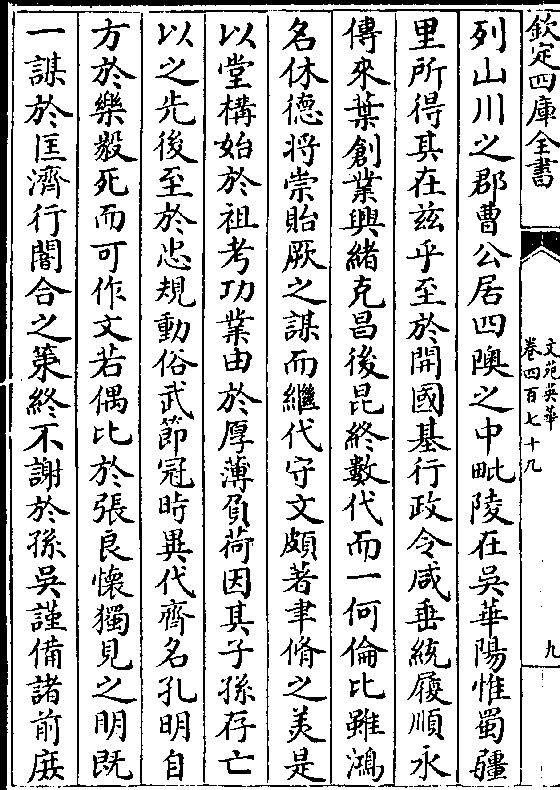 欽定四庫全書
文苑英華
卷四百七十九
九
列山川之郡曹公居四隩之中毗陵在吳華陽惟蜀疆
里所得其在兹乎至於開國基行政令咸垂統履順永
傳來葉創業興緒克昌後昆終數代而一何倫比雖鴻
名休德将崇貽厥之謀而繼代守文頗著聿脩之美是
以堂構始於祖考功業由於厚薄負荷因其子孫存亡
以之先後至於忠規動俗武節冠時異代齊名孔明自
方於樂毅死而可作文若偶比於張良懷獨見之明既
一謀於匡濟行闇合之策終不謝於孫吳謹備諸前庻